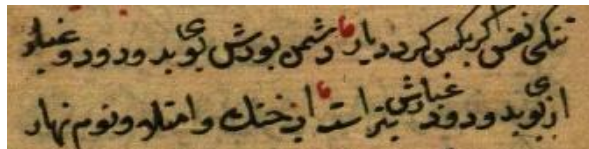 تنکی نفس اکر بکس کردد یار دشمن بودش بوی بد و دود و غبار
از بوی بد و دود و غبارش بتر است و امتلا و نوم نهار